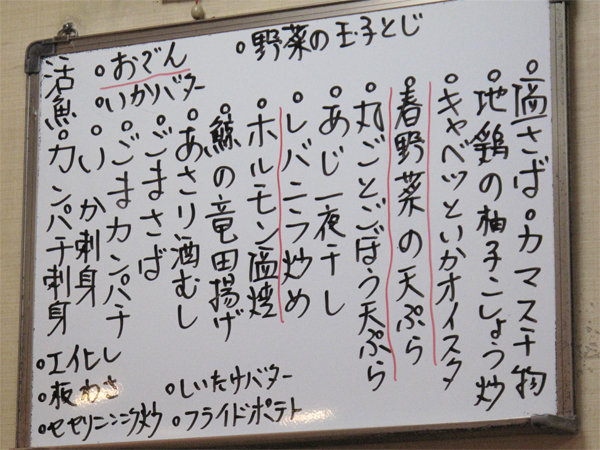 ○野菜の玉子とじ
○塩さば○カマス干物
○地鶏の柚子こしょう炒
○キャベツといかオイスタ
○春野菜の天ぷら
○丸ごとごぼう天ぷら
○あじ一夜干し
○レバニラ炒め
○ホルモン塩焼
○鯨の竜田揚げ
○あさり酒むし
○ごまさば
○ごまカンパチ
○いか刺身
活魚○カンパチ刺身
○おでん
○いかバター
○エイヒレ
○板わさ
○セセリニンニク炒
○しいたけバター
○フライドポテト